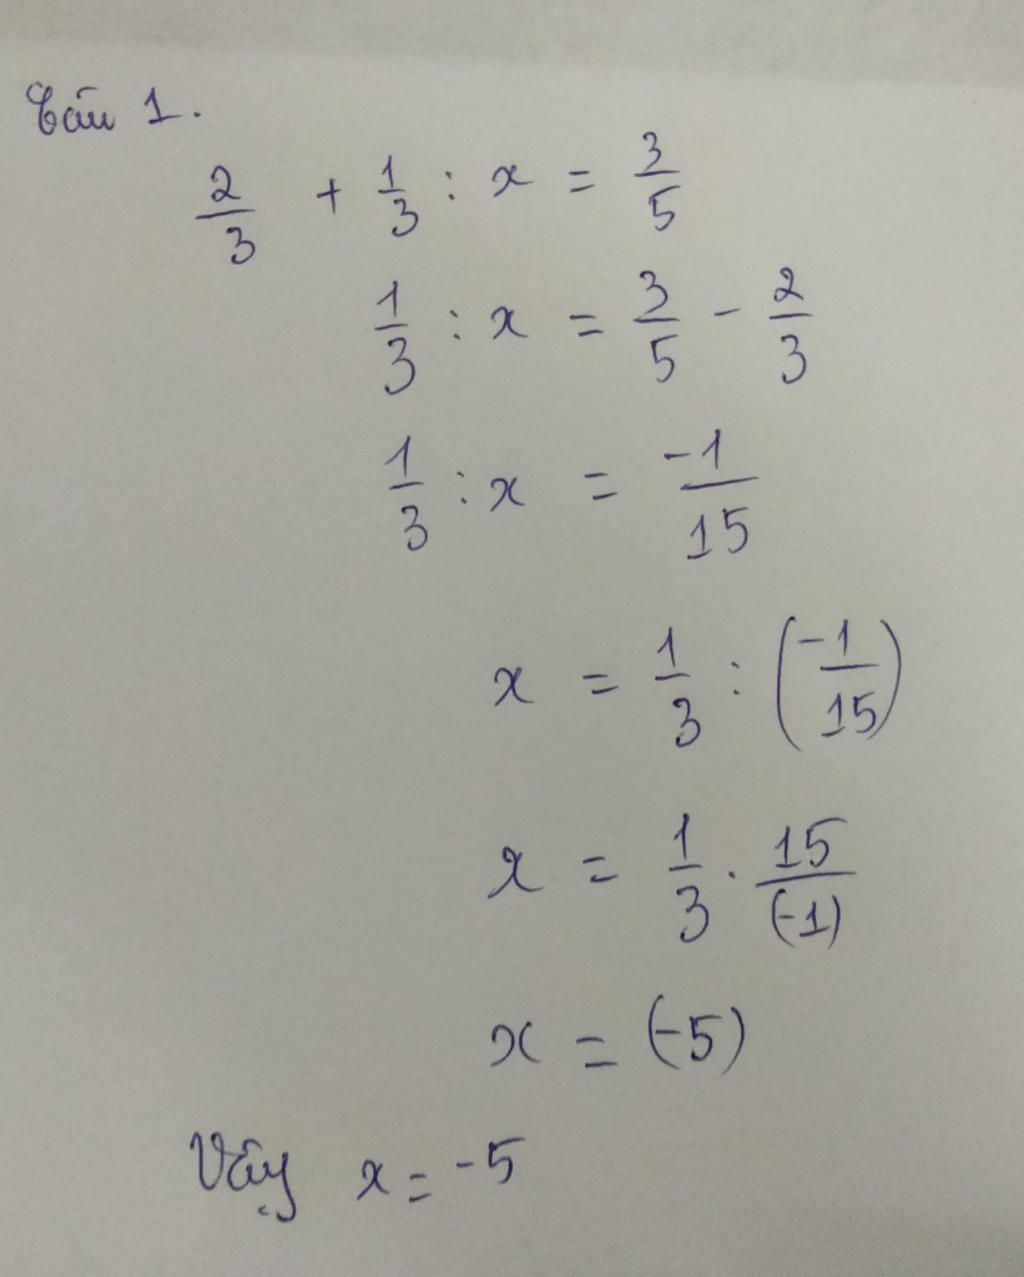 Câu 1.
2/3 + 1/3 : x = 3/5
1/3 : x = 3/5 - 2/3
1/3 : x = -1/15
x = 1/3 : (-1/15)
x = 1/3 . 15/(-1)
x = (-5)
Vậy x = -5